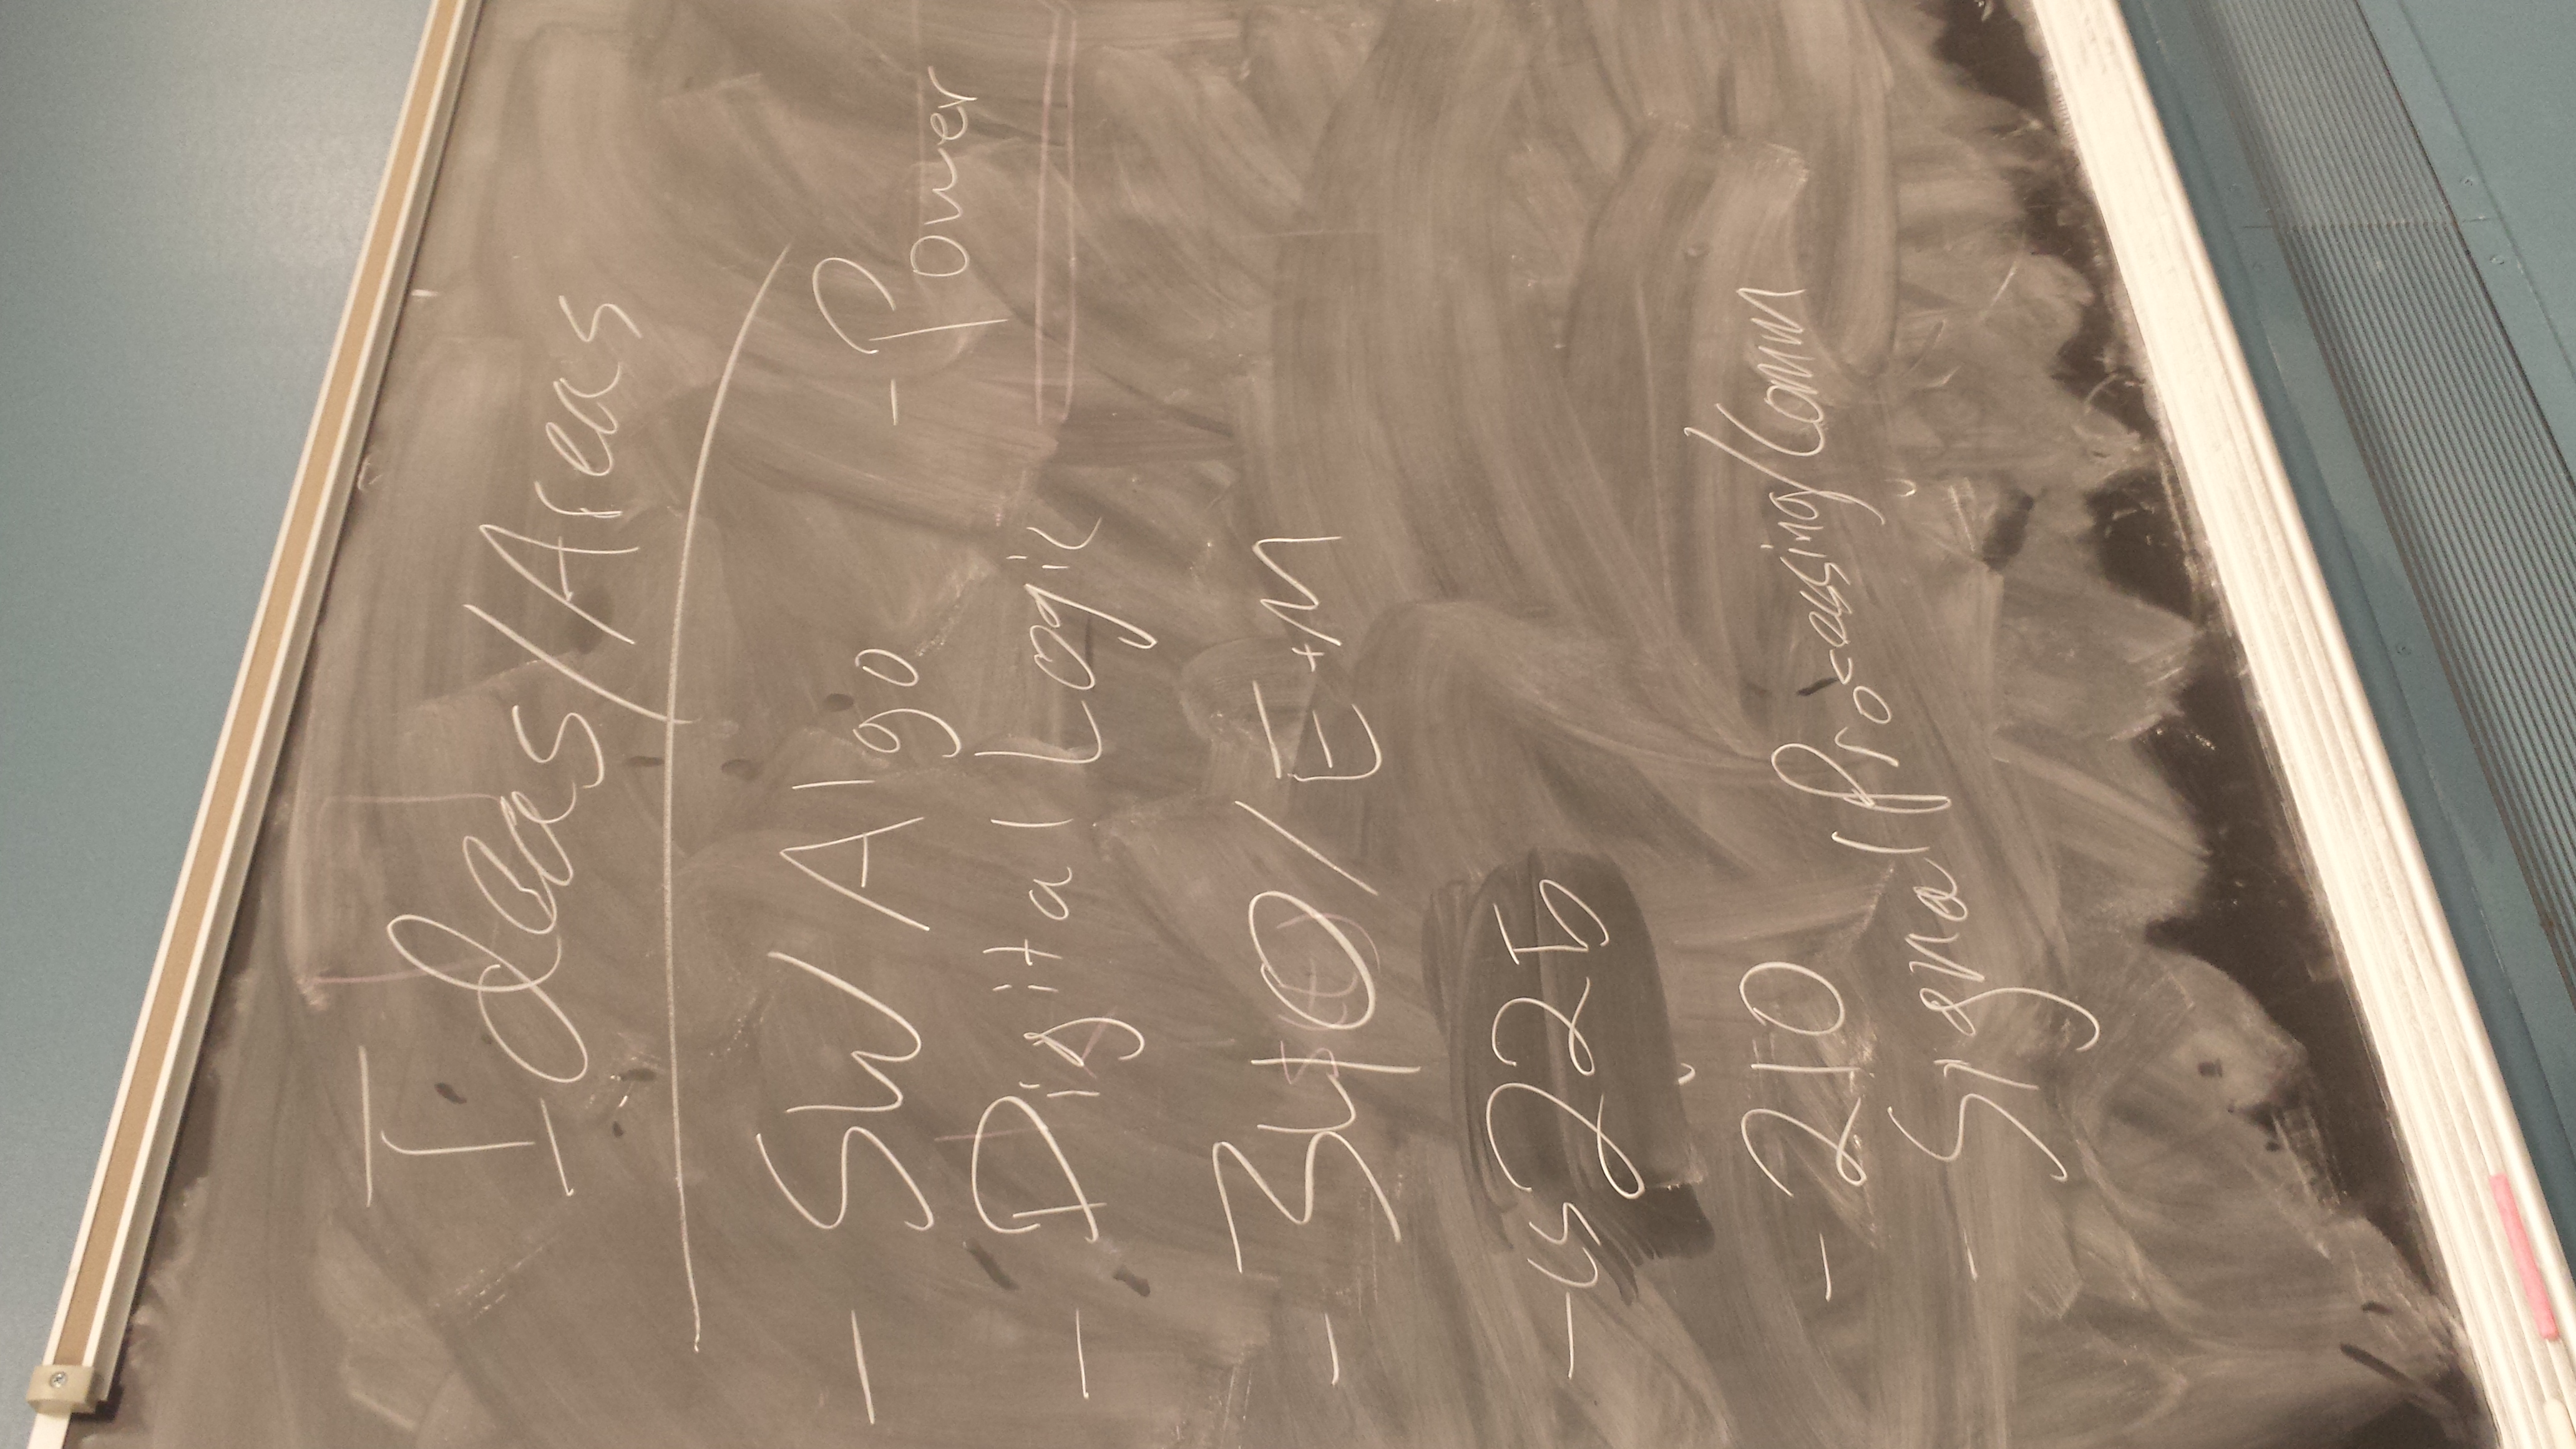 Ideas/Areas
- SW Algo
- Power
- Digital Logic
- 340/E+M
- CS 225
- 210
- Signal Processing/Comm